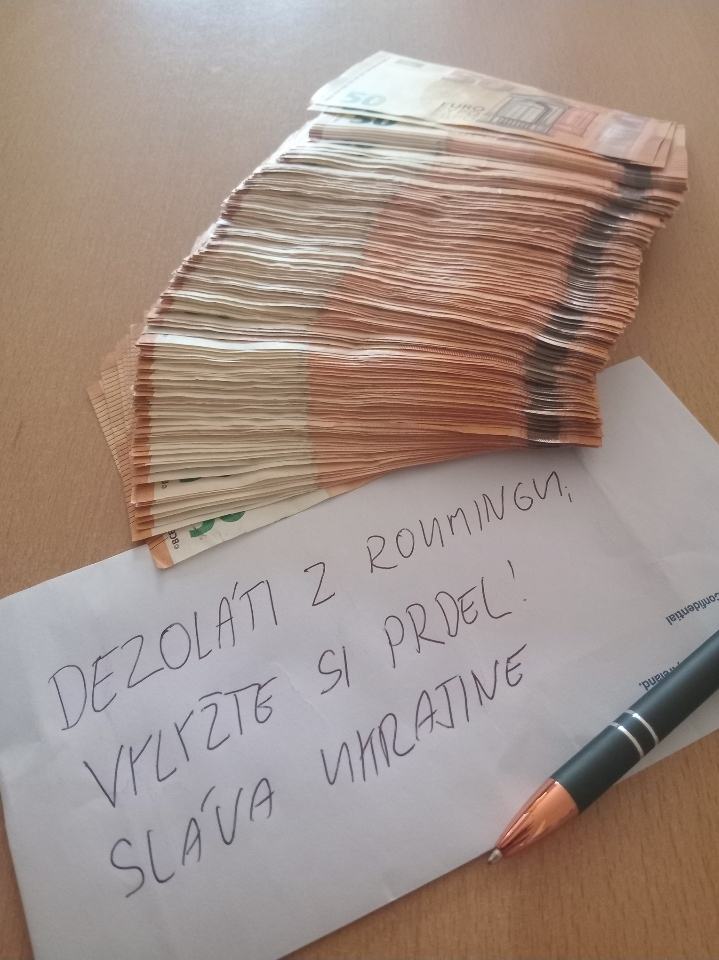 50
EURO
DEZOLÁTI Z ROUMINGU,
VYLYŽTE SI PRDEL!
SLÁVA UKRAJINE
Confidential